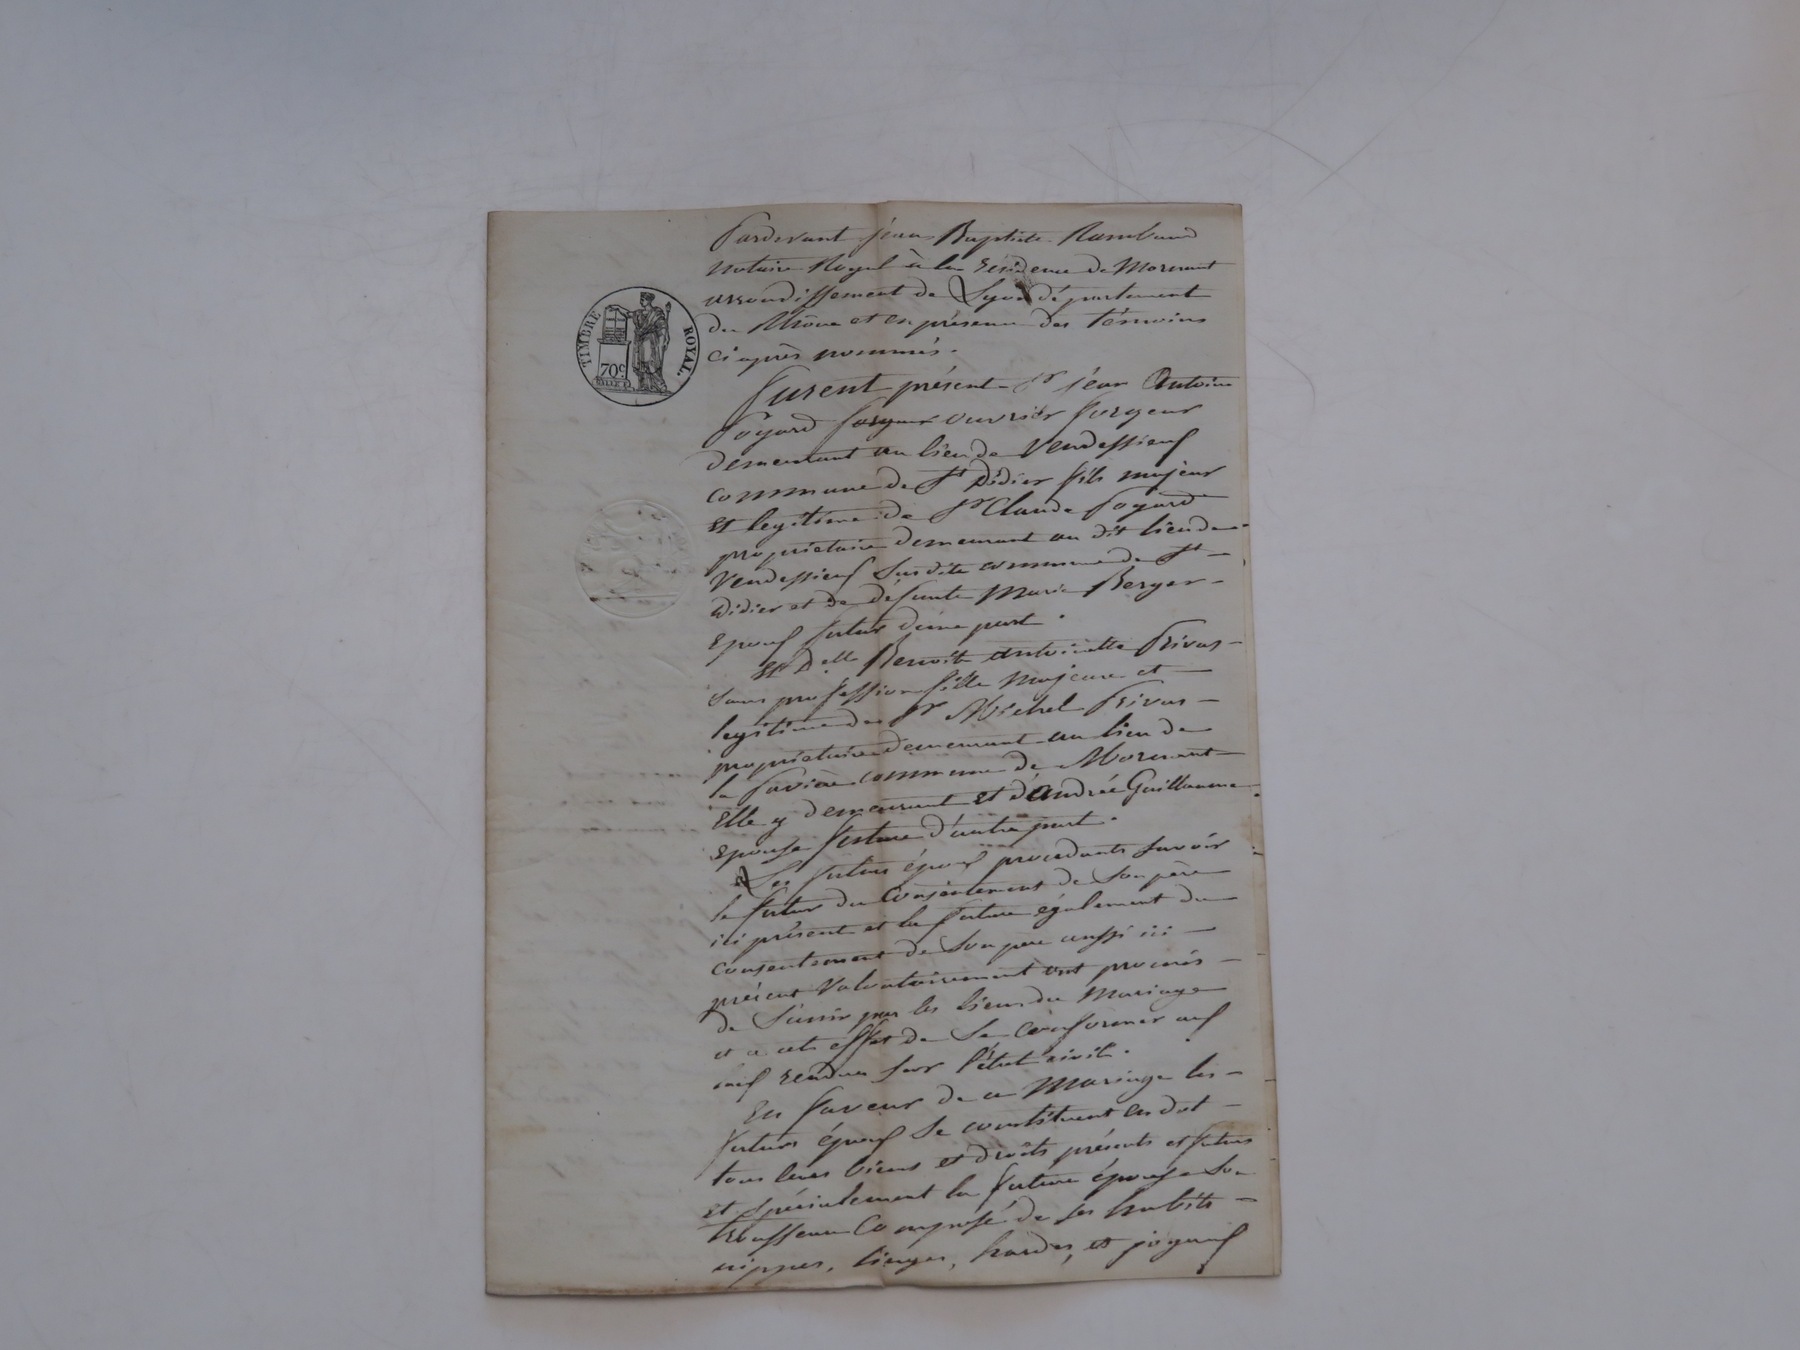 TIMBRE ROYAL.
70c
Pardevant jean Baptiste Rambaud
notaire Royal à la residence de Mornant
arrondissement de Lyon département
du Rhône et en présence des témoins
ci après nommés.
furent présent Sr jean Antoine
Poyard forgeur ouvrier forgeur
demeurant au lieu de Vendessieux
commune de St Didier fils majeur
et legitime de Sr Claude Poyard
proprietaire demeurant au dit lieu de
Vendessieux susdite commune de St
Didier et de defunte Marie Berger
époux futur d'une part.
Et Delle Benoite antoinette Privas
sans profession fille majeure et
legitime de Sr Michel Privas
propriétaire demeurant au lieu de
la commune de Mornant
elle y demeurant et d'andrée Guillaume
épouse future d'autre part.
Les futurs époux procedants savoir
le futur du consentement de son père
ici présent et la future également du
consentement de son père aussi ici
présent volontairement ont promis
de s'unir par les liens du Mariage
et a cet effet de se conformer aux
loix rendues sur l'état civil.
En faveur de ce Mariage les
futurs époux se constituent en dot
tous leurs biens et droits présents et futurs
et spécialement la future épouse son
trousseau Composé de ses habits
nippes, linges, hardes, et joyaux